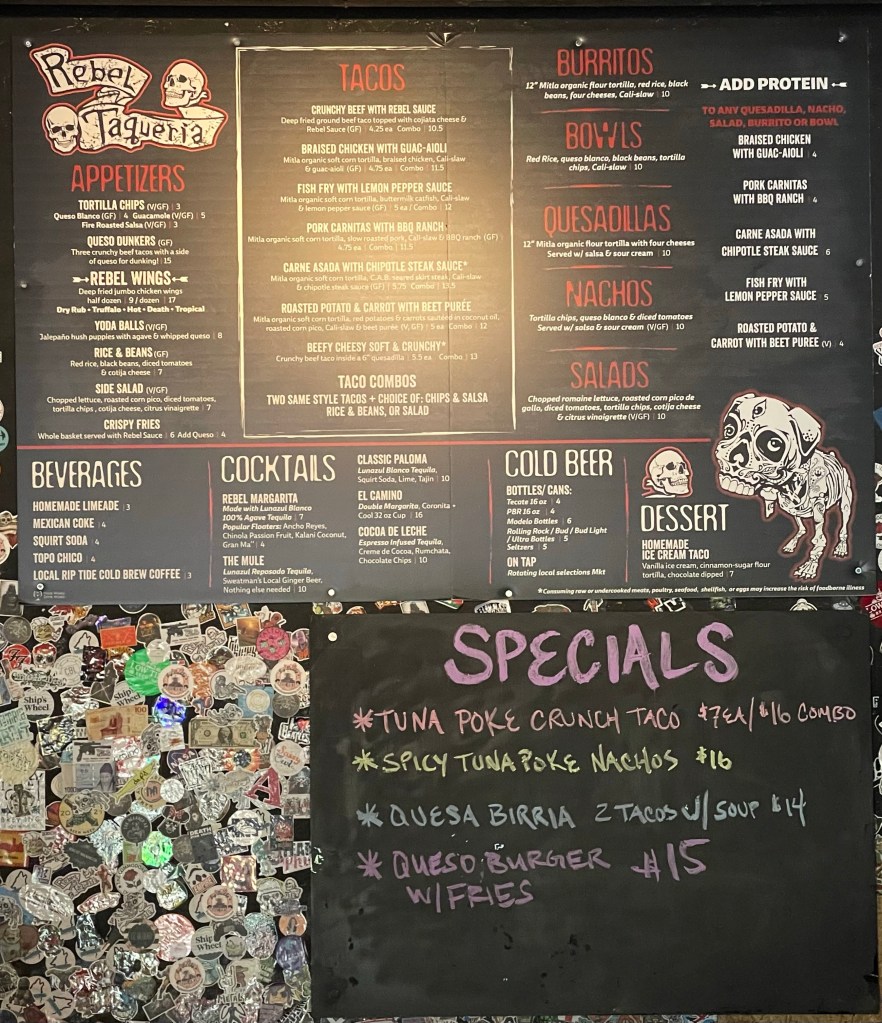 Rebel
Taqueria
APPETIZERS
TORTILLA CHIPS (V/GF) | 3
Queso Blanco (GF) | 4 Guacamole (V/GF) | 5
Fire Roasted Salsa (V/GF) | 3
QUESO DUNKERS (GF)
Three crunchy beef tacos with a side
of queso for dunking! | 15
REBEL WINGS
Deep fried jumbo chicken wings
half dozen | 9 / dozen | 17
Dry Rub • Truffalo • Hot • Death • Tropical
YODA BALLS (V/GF)
Jalapeño hush puppies with agave & whipped queso | 8
RICE & BEANS (GF)
Red rice, black beans, diced tomatoes
& cotija cheese | 7
SIDE SALAD (V/GF)
Chopped lettuce, roasted corn pico, diced tomatoes,
tortilla chips , cotija cheese, citrus vinaigrette | 7
CRISPY FRIES
Whole basket served with Rebel Sauce | 6 Add Queso | 4
TACOS
CRUNCHY BEEF WITH REBEL SAUCE
Deep fried ground beef taco topped with cojiata cheese &
Rebel Sauce (GF) | 4.25 ea Combo | 10.5
BRAISED CHICKEN WITH GUAC-AIOLI
Mitla organic soft corn tortilla, braised chicken, Cali-slaw
& guac-aioli (GF) | 4.75 ea Combo | 11.5
FISH FRY WITH LEMON PEPPER SAUCE
Mitla organic soft corn tortilla, buttermilk catfish, Cali-slaw
& lemon pepper sauce (GF) | 5 ea / Combo | 12
PORK CARNITAS WITH BBQ RANCH
Mitla organic soft corn tortilla, slow roasted pork, Cali-slaw & BBQ ranch (GF)
4.75 ea | Combo | 11.5
CARNE ASADA WITH CHIPOTLE STEAK SAUCE*
Mitla organic soft corn tortilla, C.A.B. seared skirt steak, Cali-slaw
& chipotle steak sauce (GF) | 5.75 Combo | 13.5
ROASTED POTATO & CARROT WITH BEET PURÉE
Mitla organic soft corn tortilla, red potatoes & carrots sautéed in coconut oil,
roasted corn pico, Cali-slaw & beet purée (V, GF) | 5 ea Combo | 12
BEEFY CHEESY SOFT & CRUNCHY*
Crunchy beef taco inside a 6" quesadilla | 5.5 ea Combo | 13
TACO COMBOS
TWO SAME STYLE TACOS + CHOICE OF: CHIPS & SALSA
RICE & BEANS, OR SALAD
BURRITOS
12" Mitla organic flour tortilla, red rice, black
beans, four cheeses, Cali-slaw | 10
BOWLS
Red Rice, queso blanco, black beans, tortilla
chips, Cali-slaw | 10
QUESADILLAS
12" Mitla organic flour tortilla with four cheeses
Served w/ salsa & sour cream | 10
NACHOS
Tortilla chips, queso blanco & diced tomatoes
Served w/ salsa & sour cream (V/GF) | 10
SALADS
Chopped romaine lettuce, roasted corn pico de
gallo, diced tomatoes, tortilla chips, cotija cheese
& citrus vinaigrette (V/GF) | 10
ADD PROTEIN
TO ANY QUESADILLA, NACHO,
SALAD, BURRITO OR BOWL
BRAISED CHICKEN
WITH GUAC-AIOLI | 4
PORK CARNITAS
WITH BBQ RANCH | 4
CARNE ASADA WITH
CHIPOTLE STEAK SAUCE 6
FISH FRY WITH
LEMON PEPPER SAUCE | 5
ROASTED POTATO &
CARROT WITH BEET PUREE (V) | 4
BEVERAGES
HOMEMADE LIMEADE | 3
MEXICAN COKE | 4
SQUIRT SODA | 4
TOPO CHICO | 4
LOCAL RIP TIDE COLD BREW COFFEE | 3
COCKTAILS
REBEL MARGARITA
Made with Lunazul Blanco
100% Agave Tequila | 7
Popular Floaters: Ancho Reyes,
Chinola Passion Fruit, Kalani Coconut,
Gran Ma" | 4
THE MULE
Lunazul Reposado Tequila,
Sweatman's Local Ginger Beer,
Nothing else needed | 10
CLASSIC PALOMA
Lunazul Blanco Tequila,
Squirt Soda, Lime, Tajin | 10
EL CAMINO
Double Margarita, Coronita •
Cool 32 oz Cup | 16
COCOA DE LECHE
Espresso Infused Tequila,
Creme de Cocoa, Rumchata,
Chocolate Chips | 10
COLD BEER
BOTTLES/ CANS:
Tecate 16 oz | 4
PBR 16 oz | 4
Modelo Bottles | 6
Rolling Rock / Bud / Bud Light
/ Ultra Bottles | 5
Seltzers | 5
ON TAP
Rotating local selections Mkt
DESSERT
HOMEMADE
ICE CREAM TACO
Vanilla ice cream, cinnamon-sugar flour
tortilla, chocolate dipped | 7
*Consuming raw or undercooked meats, poultry, seafood, shellfish, or eggs may increase the risk of foodborne illness
SPECIALS
*TUNA POKE CRUNCH TACO $7EA/$16 COMBO
*SPICY TUNA POKE NACHOS $16
*QUESA BIRRIA 2 TACOS W/ SOUP $14
*QUESO BURGER $15
W/FRIES
Ship's
Wheel
Ship's
Wheel
Ship
Wheel
DEATH